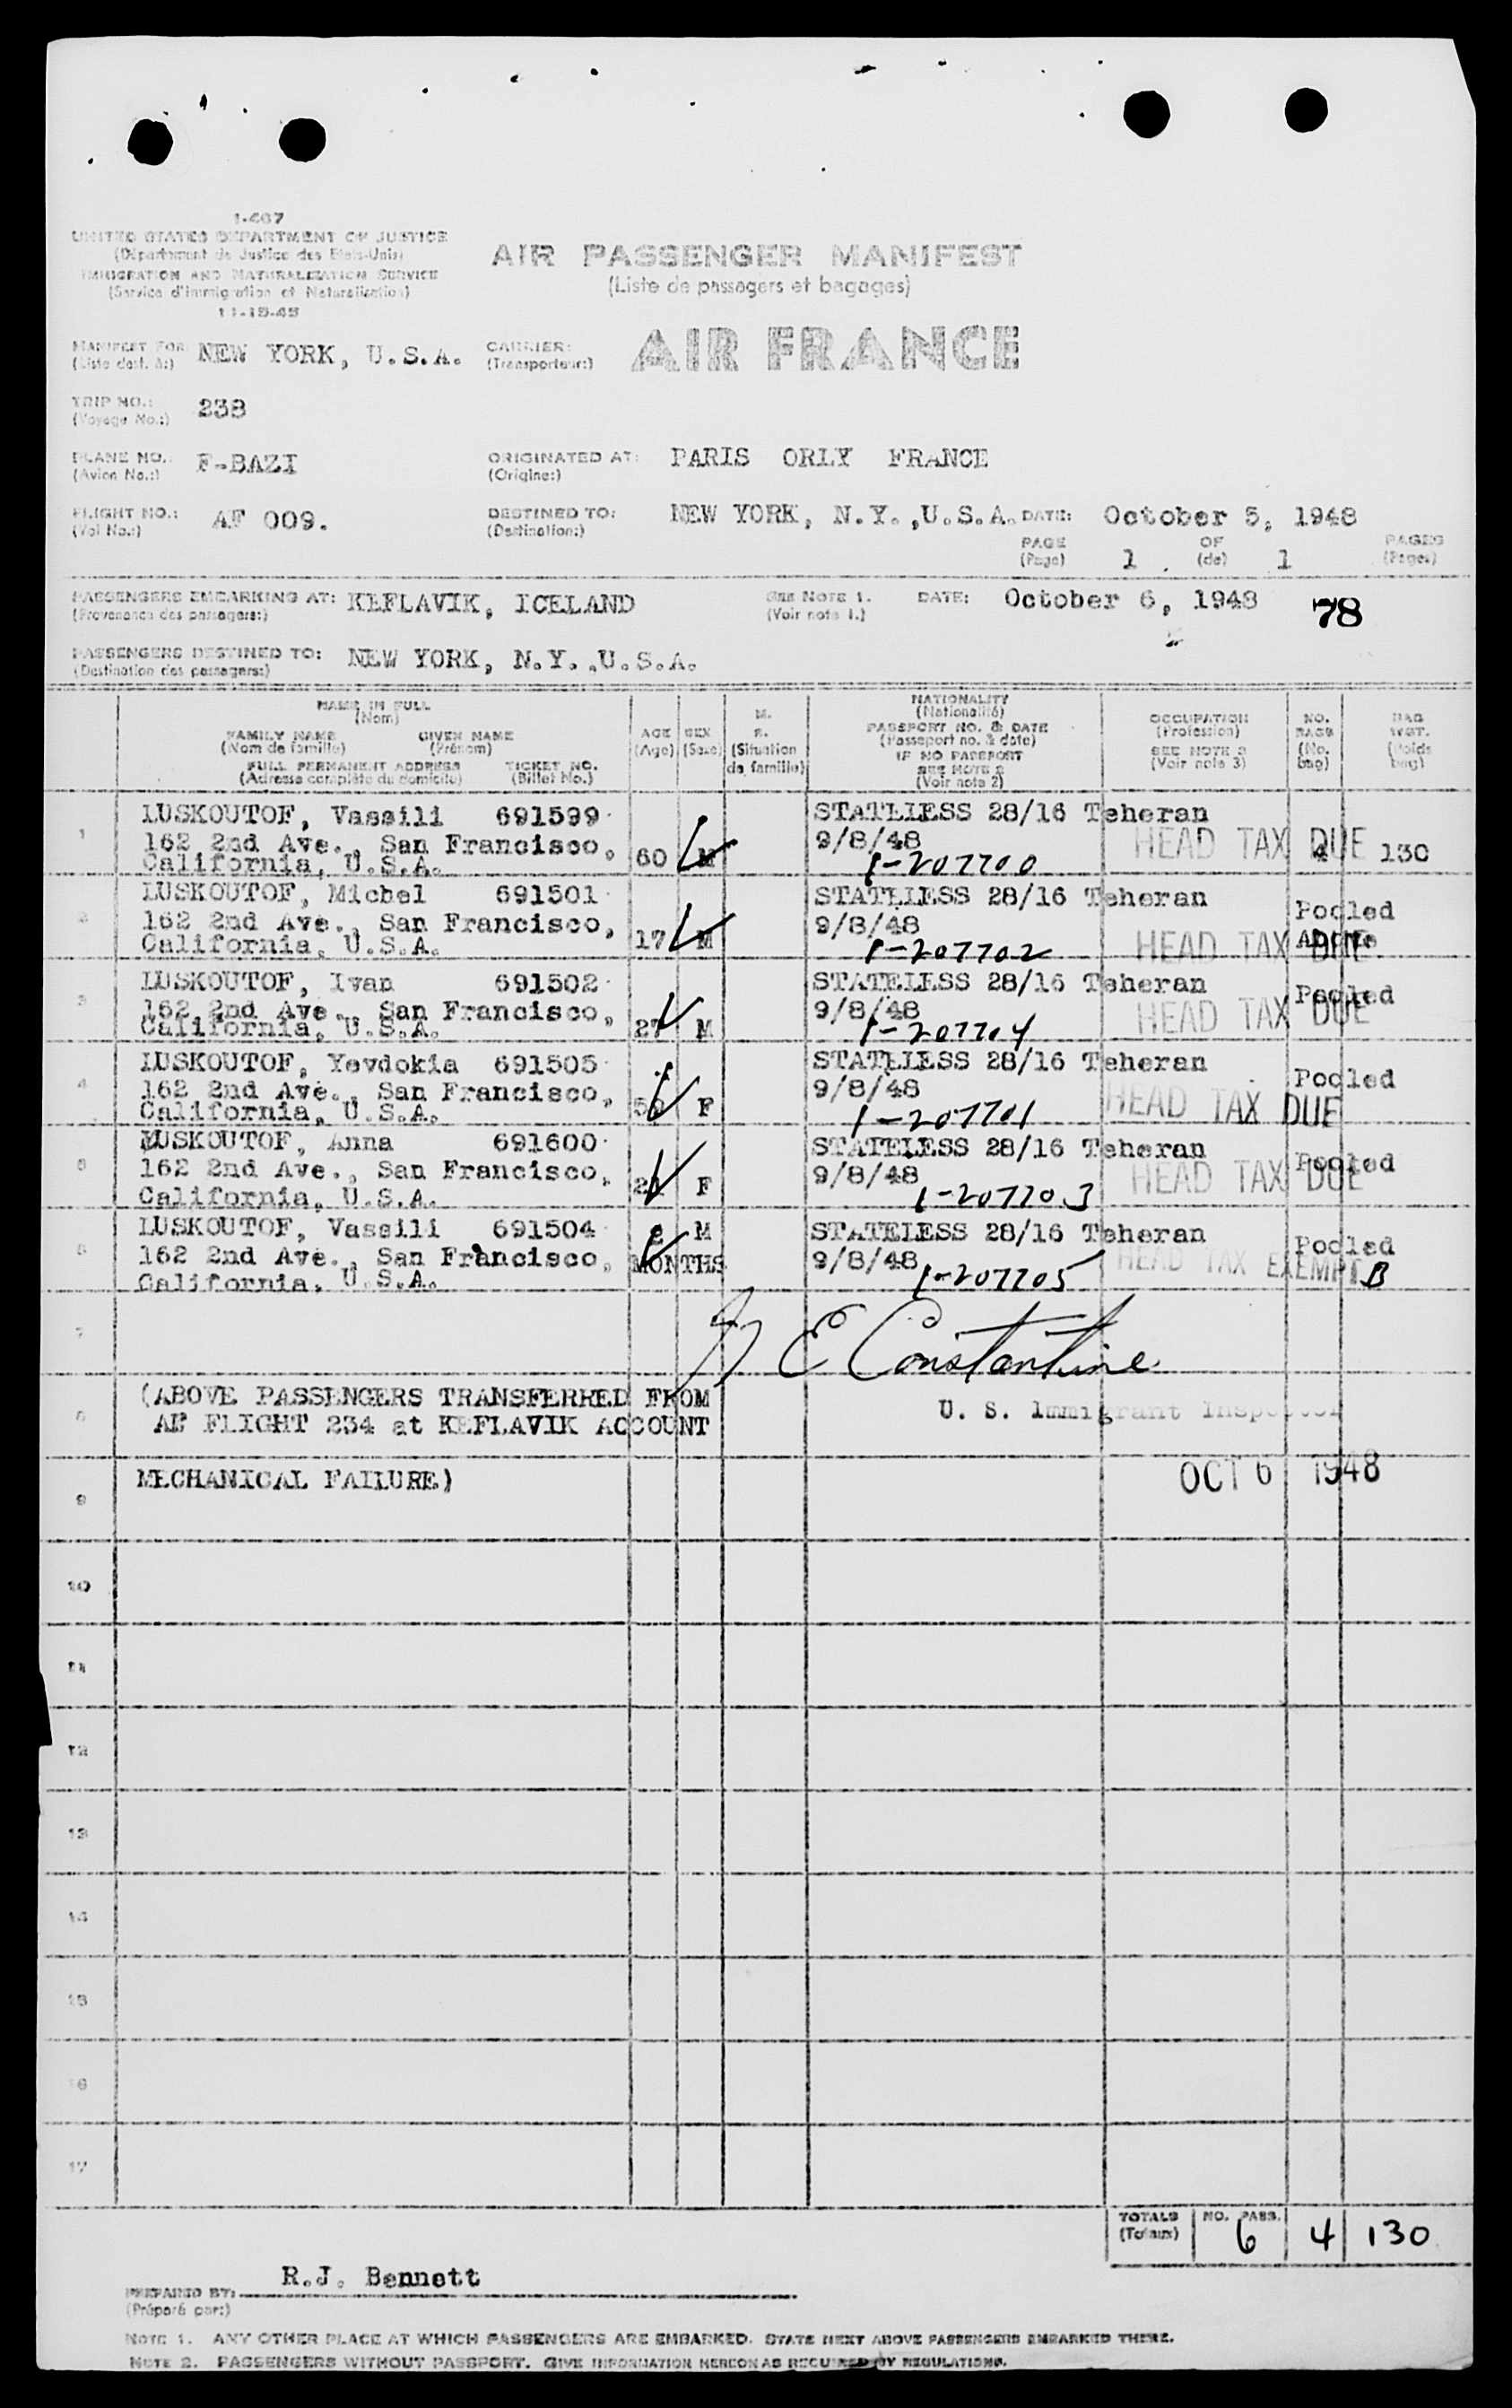 I-467
UNITED STATES DEPARTMENT OF JUSTICE
(Département de Justice des Etats-Unis)
IMMIGRATION AND NATURALIZATION SERVICE
(Service d'immigration et Naturalization)
11-15-45
AIR PASSENGER MANIFEST
(Liste de passagers et bagages)
MANIFEST FOR: NEW YORK, U.S.A. CARRIER: AIR FRANCE
(Liste dest. à:) (Transporteur:)
TRIP NO.: 238
(Voyage No.:)
PLANE NO.: F-BAZI ORIGINATED AT: PARIS ORLY FRANCE
(Avion No.:) (Origine:)
FLIGHT NO.: AF 009. DESTINED TO: NEW YORK, N.Y.,U.S.A. DATE: October 5, 1948
(Vol No.:) (Destination:)
PAGE 1 OF 1 PAGES
(Page) (de) (Pages)
PASSENGERS EMBARKING AT: KEFLAVIK, ICELAND SEE NOTE 1. DATE: October 6, 1948 78
(Provenance des passagers:) (Voir note 1.)
PASSENGERS DESTINED TO: NEW YORK, N.Y.,U.S.A.
(Destination des passagers:)
NAME IN FULL
(Nom)
FAMILY NAME GIVEN NAME
(Nom de famille) (Prénom)
FULL PERMANENT ADDRESS TICKET NO.
(Adresse complète du domicile) (Billet No.)
AGE
(Age)
SEX
(Sexe)
M.
(Situation
de famille)
NATIONALITY
(Nationalité)
PASSPORT NO. & DATE
(Passeport no. & date)
IF NO PASSPORT
SEE NOTE 2
(Voir note 2)
OCCUPATION
(Profession)
SEE NOTE 3
(Voir note 3)
NO.
BAGS
(No.
bag)
BAG
WGT.
(Poids
bag)
1 LUSKOUTOF, Vassili 691599 STATELESS 28/16 Teheran
162 2nd Ave., San Francisco, 9/8/48 HEAD TAX DUE
California, U.S.A. 60 M 1-207700 4 130
2 LUSKOUTOF, Michel 691501 STATELESS 28/16 Teheran
162 2nd Ave., San Francisco, 9/8/48 Pooled
California, U.S.A. 17 M 1-207702 HEAD TAX DUE
3 LUSKOUTOF, Ivan 691502 STATELESS 28/16 Teheran
162 2nd Ave., San Francisco, 9/8/48 Pooled
California, U.S.A. 27 M 1-207704 HEAD TAX DUE
4 LUSKOUTOF, Yevdokia 691505 STATELESS 28/16 Teheran
162 2nd Ave., San Francisco, 9/8/48 Pooled
California, U.S.A. F 1-207701 HEAD TAX DUE
5 LUSKOUTOF, Anna 691600 STATELESS 28/16 Teheran
162 2nd Ave., San Francisco, 9/8/48 Pooled
California, U.S.A. 21 F 1-207703 HEAD TAX DUE
6 LUSKOUTOF, Vassili 691504 M STATELESS 28/16 Teheran
162 2nd Ave., San Francisco, MONTHS 9/8/48 Pooled
California, U.S.A. 1-207705 HEAD TAX EXEMPT B
7 E Constantine
8 (ABOVE PASSENGERS TRANSFERRED FROM
U. S. Immigrant Inspector
AF FLIGHT 234 at KEFLAVIK ACCOUNT
9 MECHANICAL FAILURE)
OCT 6 1948
10
11
12
13
14
15
16
17
TOTALS NO. PASS. 6 4 130
(Totaux)
PREPARED BY: R.J. Bennett
(Préparé par:)
NOTE 1. ANY OTHER PLACE AT WHICH PASSENGERS ARE EMBARKED. STATE NEXT ABOVE PASSENGERS EMBARKED THERE.
NOTE 2. PASSENGERS WITHOUT PASSPORT. GIVE INFORMATION HEREON AS REQUIRED BY REGULATIONS.